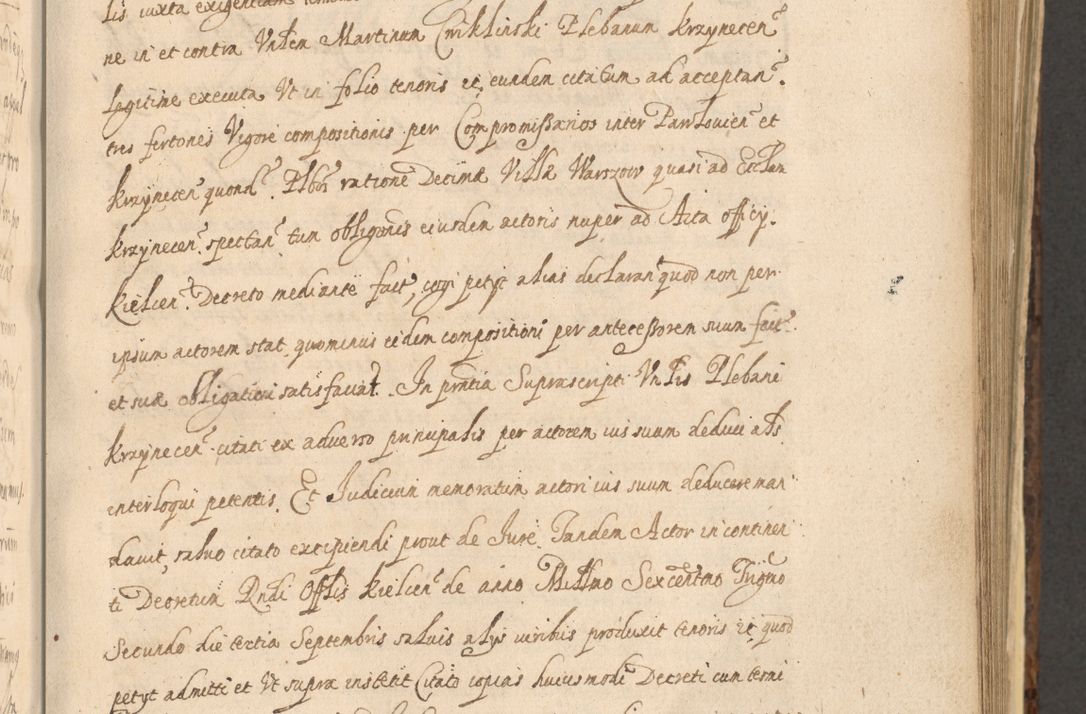 lis iuxta exigentiam
ne in et contra Vnłem Martinum Cwikliński Plebanum krzynecen̄
legitime executa Vt in folio tenoris et, eundem citatum ad acceptan̄.
tres fertones Vigore compositionis per Compromissarios inter Pawlouien̄ et
krzynecen̄ quond̄. Plbōs ratione Decimæ Villæ Warszow quasi ad Eccłam
krzynecen̄. spectan̄. tum obligōnis eiusdem actoris nuper ad Acta officÿ.
kielcen̄. Decreto mediante fact, cogi petÿt alias declarari quod non per
ipsum actorem stat, quominus eidem compositioni per antecessorem suum fact
et suæ obligationi satisfaciat. In prn̄tia Suprascripti Vnłis Plebani
krzynecen̄ citati ex aduerso principalis per actorem ius suum deduci als
interloqui petentis. Et Iudicium memoratum actori ius suum deducere man
dauit, saluo citato excipiendi prout de Iure. Tandem Actor in continen
ti Decretum Rndi Offlis kielcen̄ de anno Millmo Sexcentmo Trigmo
Secundo die tertia Septembris saluis alÿs iuribus produxit tenoris et quod
petÿt admitti et Vt supra institit Citato copias huiusmodi Decreti cum termi